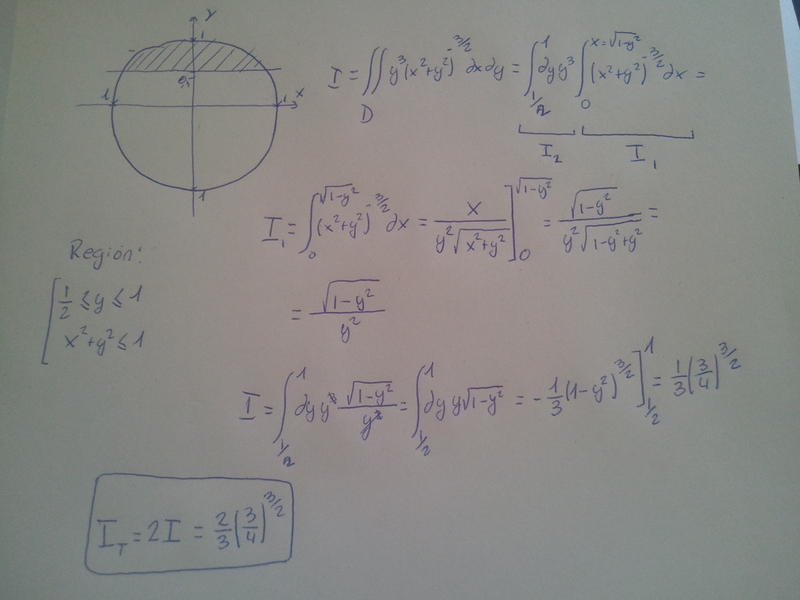 y
1
0,5
1 1 x
1
I = ∬_D y³(x²+y²)^(-3/2) dxdy = ∫_(1/2)^1 dy y³ ∫_0^(x=√(1-y²)) (x²+y²)^(-3/2) dx =
I₂ I₁
I₁ = ∫_0^(√(1-y²)) (x²+y²)^(-3/2) dx = x/(y²√(x²+y²)) ]_0^(√(1-y²)) = √(1-y²)/(y²√(1-y²+y²)) =
= √(1-y²)/y²
Región:
1/2 ≤ y ≤ 1
x²+y² ≤ 1
I = ∫_(1/2)^1 dy y³ √(1-y²)/y² = ∫_(1/2)^1 dy y√(1-y²) = -1/3 (1-y²)^(3/2) ]_(1/2)^1 = 1/3 (3/4)^(3/2)
I_T = 2I = 2/3 (3/4)^(3/2)